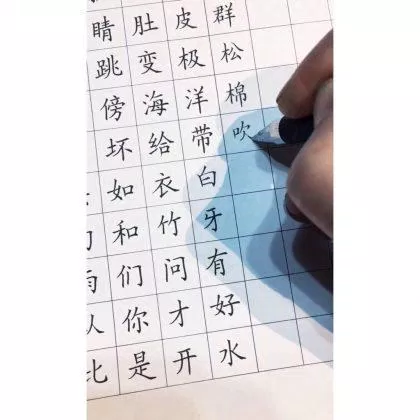 睛 肚 皮 群
跳 变 极 松
傍 海 洋 棉
坏 给 带 吹
如 衣 白
和 竹 牙
们 问 有
你 才 好
比 是 开 水